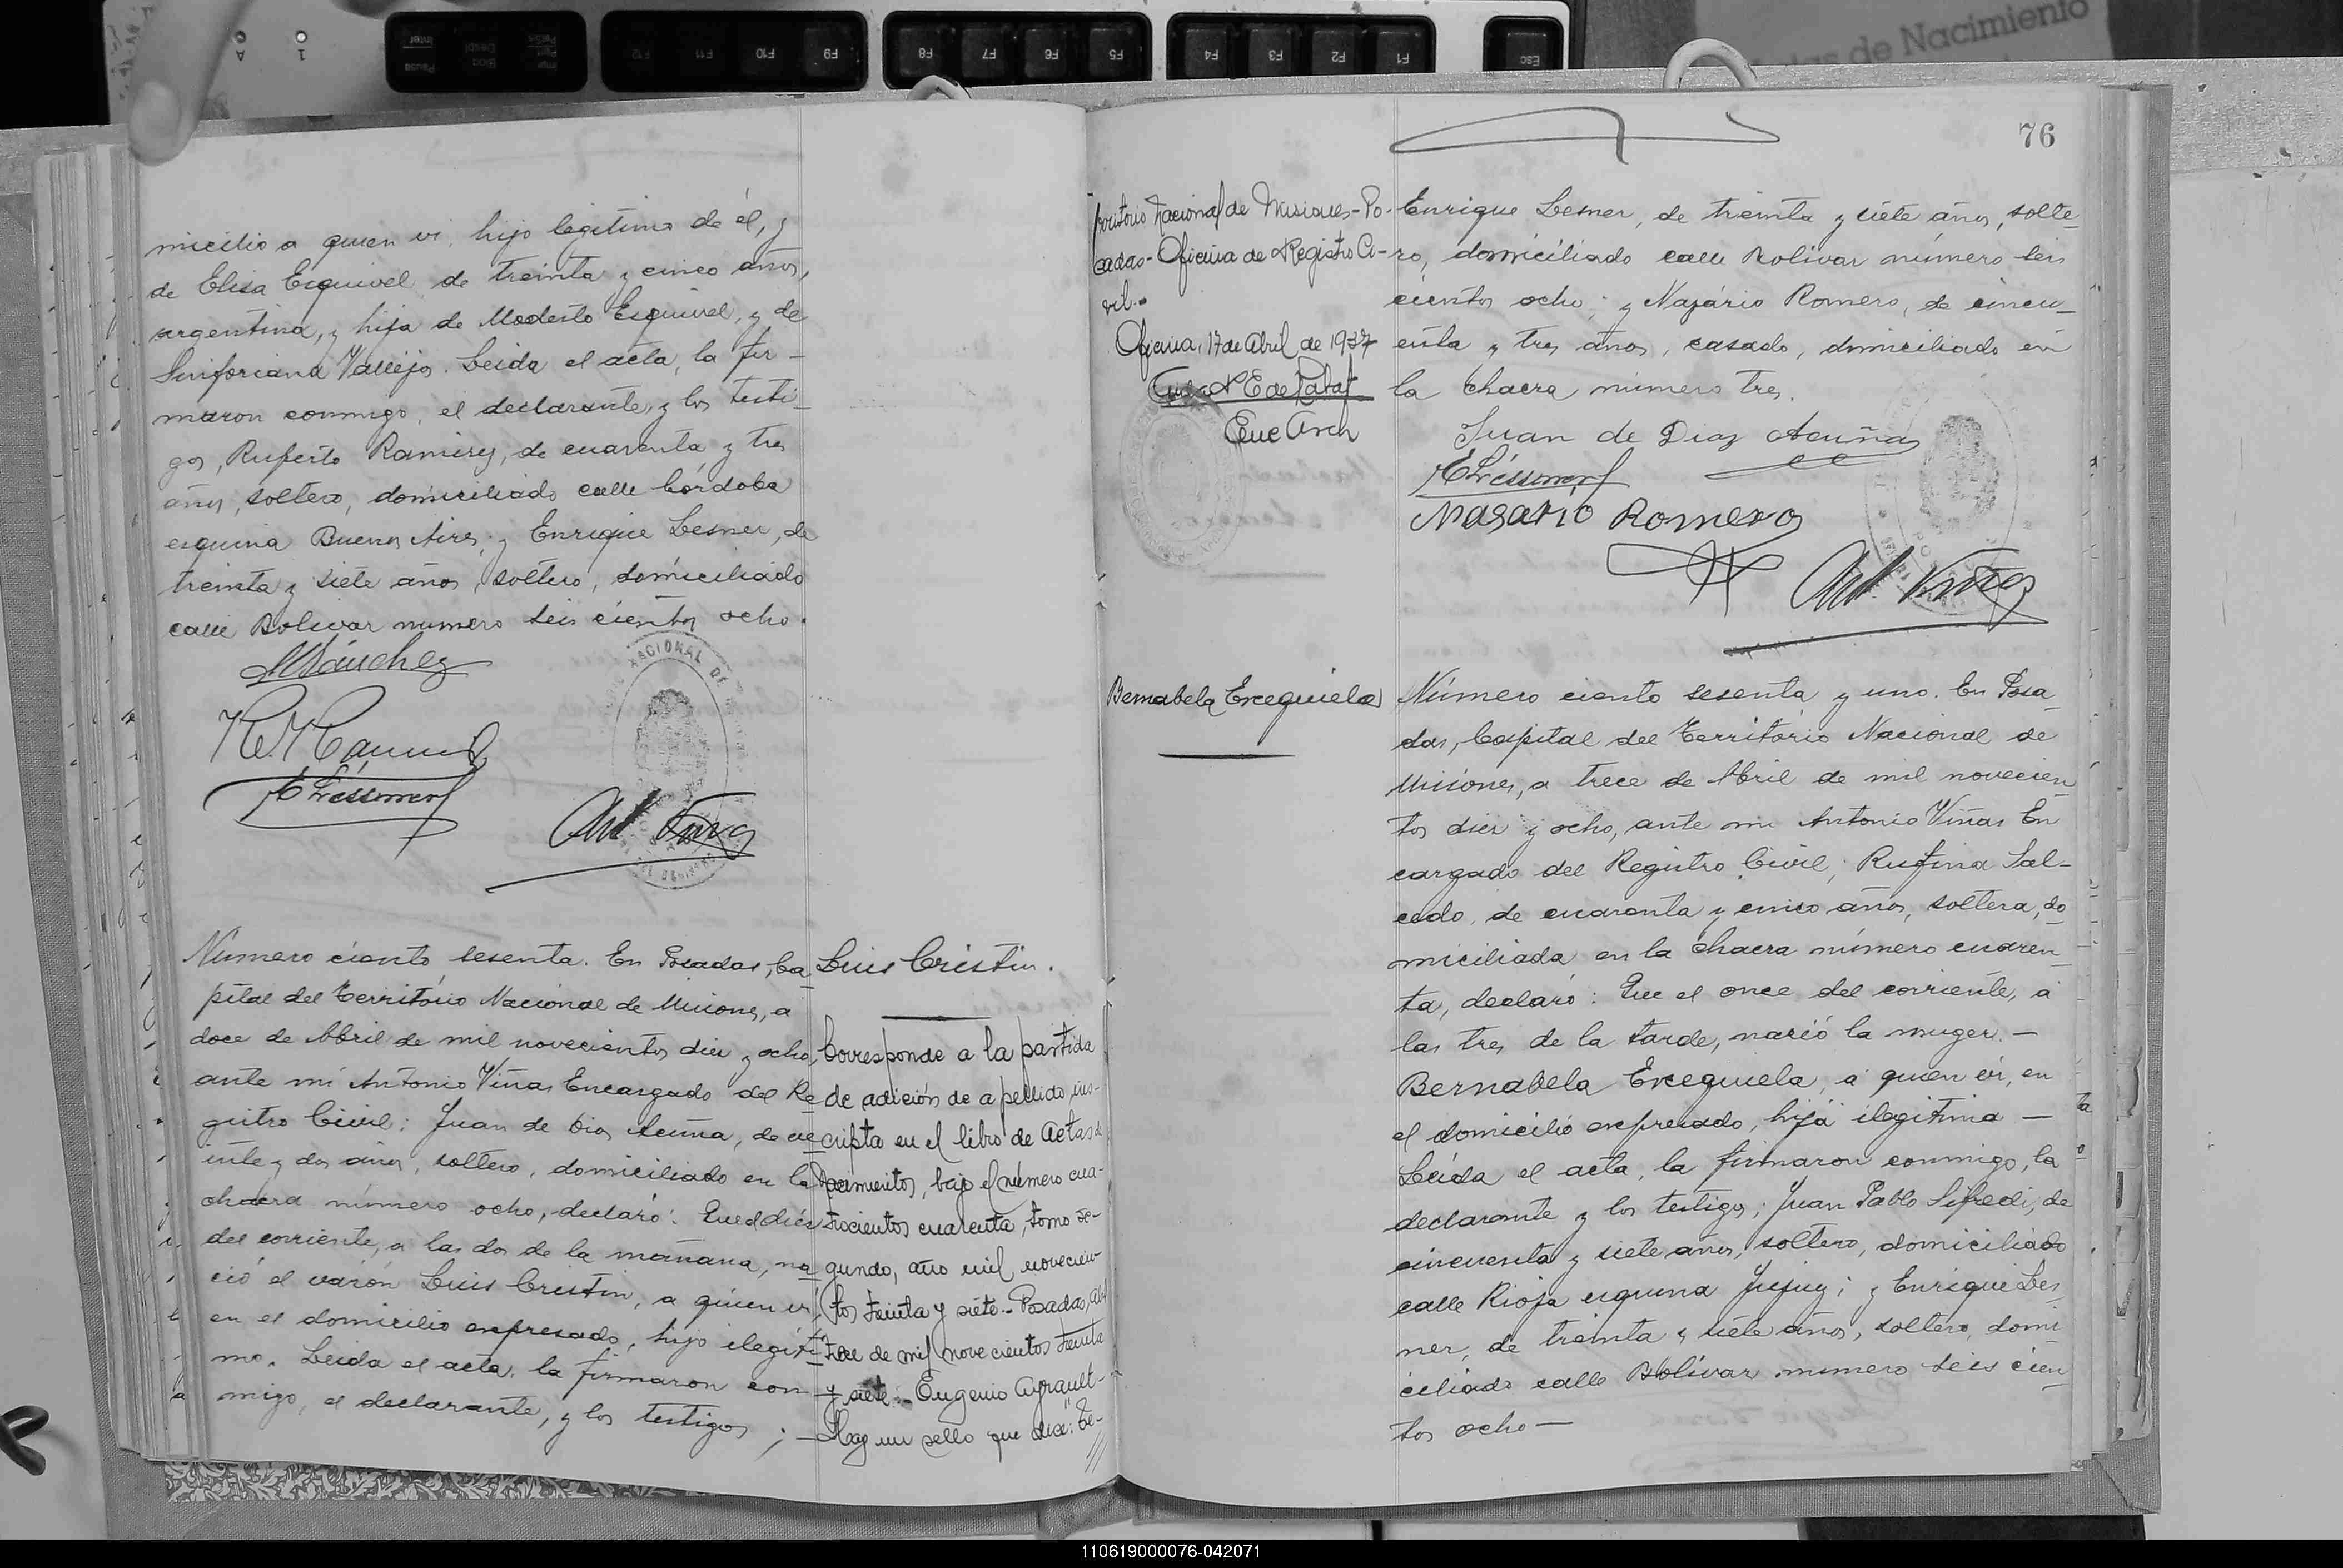 76
micilio a quien vi, hijo legítimo de él, y
de Elisa Esquivel de treinta y cinco años,
argentina, y hija de Modesto Esquivel, y de
Sinforiana Vallejos. Leida el acta, la fir-
maron conmigo, el declarante, y los testi-
gos, Ruperto Ramirez, de cuarenta y tres
años, soltero, domiciliado calle Córdoba
esquina Buenos Aires; y Enrique Lesner, de
treinta y siete años, soltero, domiciliado
calle Bolivar numero seis cientos ocho.
MSánchez
NACIONAL DE
Número ciento sesenta. En Posadas, Ca
pital del Territorio Nacional de Misiones, a
doce de Abril de mil novecientos diez y ocho,
ante mi Antonio Viñas Encargado del Re
gistro Civil; Juan de Dios Acuña, de ve
inte y dos años, soltero, domiciliado en la
chacra número ocho, declaró: Que el diés
del corriente, a las dos de la mañana, na
ció el varón Luis Cristin, a quien vi,
en el domicilio expresado, hijo ilegíti
mo. Leida el acta, la firmaron con
migo, el declarante, y los testigos;—
Luis Cristin.
Corresponde a la partida
de adición de apellido, ins-
cripta en el libro de Actas de
Nacimientos, bajo el número cua-
trocientos cuarenta, tomo se-
gundo, año mil novecien
tos treinta y siete.- Posadas, abril
trece de mil novecientos treinta
y siete.- Eugenio Ayrault-
Hay un sello que dice: "Te-
rritorio Nacional de Misiones-Po-
sadas-Oficina de Registro Ci-
vil.-
Oficina, 17 de Abril de 1937
Enc Arch
Enrique Lesner, de treinta y siete años, solte-
ro, domiciliado calle Bolivar número seis
cientos ocho; y Nazário Romero, de cincu_
enta y tres años, casado, domiciliado en
la chacra número tres.
Juan de Dioz Acuña
Nasario Romero
Bernabela Exequiela
Número ciento sesenta y uno. En Posa
das, Capital del Territorio Nacional de
Misiones, a trece de Abril de mil novecien
tos diez y ocho, ante mi Antonio Viñas En
cargado del Registro Civil; Rufina Sal-
cedo, de cuarenta y cinco años, soltera, do
miciliada en la chacra número cuaren
ta, declaró: Que el once del corriente, a
las tres de la tarde, nació la muger.—
Bernabela Exequiela, a quien vi, en
el domicilio expresado, hija ilegitima—
Leida el acta, la firmaron conmigo, la
declarante y los testigos; Juan Pablo Sifredi, de
cincuenta y siete años, soltero, domiciliado
calle Rioja esquina Jujuy; y Enrique Les
ner, de treinta y siete años, soltero, domi
ciliado calle Bolívar numero seis cien
tos ocho—
de Nacimiento
Esc
F1
F2
F3
F4
F5
F6
F7
F8
F9
F10
F11
F12
110619000076-042071